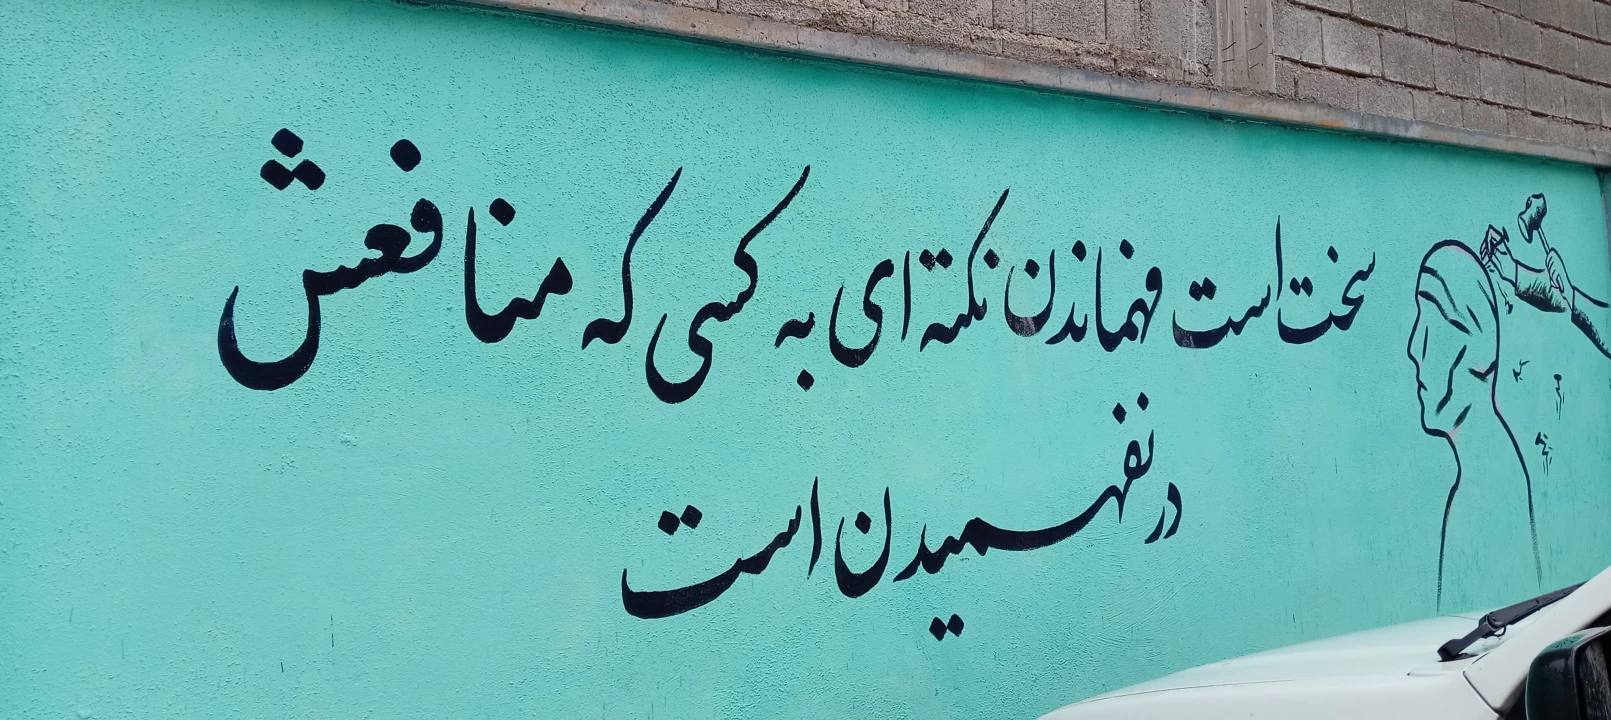 سخت است فهماندن نکته ای به کسی که منافعش
در نفهمیدن است